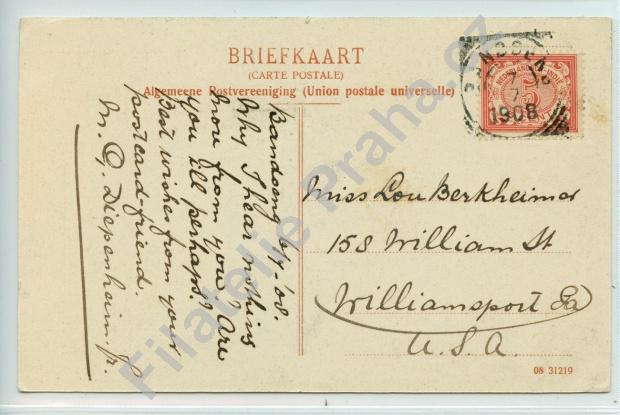 BRIEFKAART
(CARTE POSTALE)
Algemeene Postvereeniging (Union postale universelle)
BANDOENG
7
1908
NEDERLANDSCH-INDIË
5
Bandoeng 6/7 '08.
Why I hear nothing
more from you? Are
you ill perhaps?
Best wishes from your
postcard-friend.
M. Diepenheim. Jr.
Miss Lou Berkheimer
158 William St
Williamsport Pa
U.S.A.
08 31219
Filatelie Praha.cz